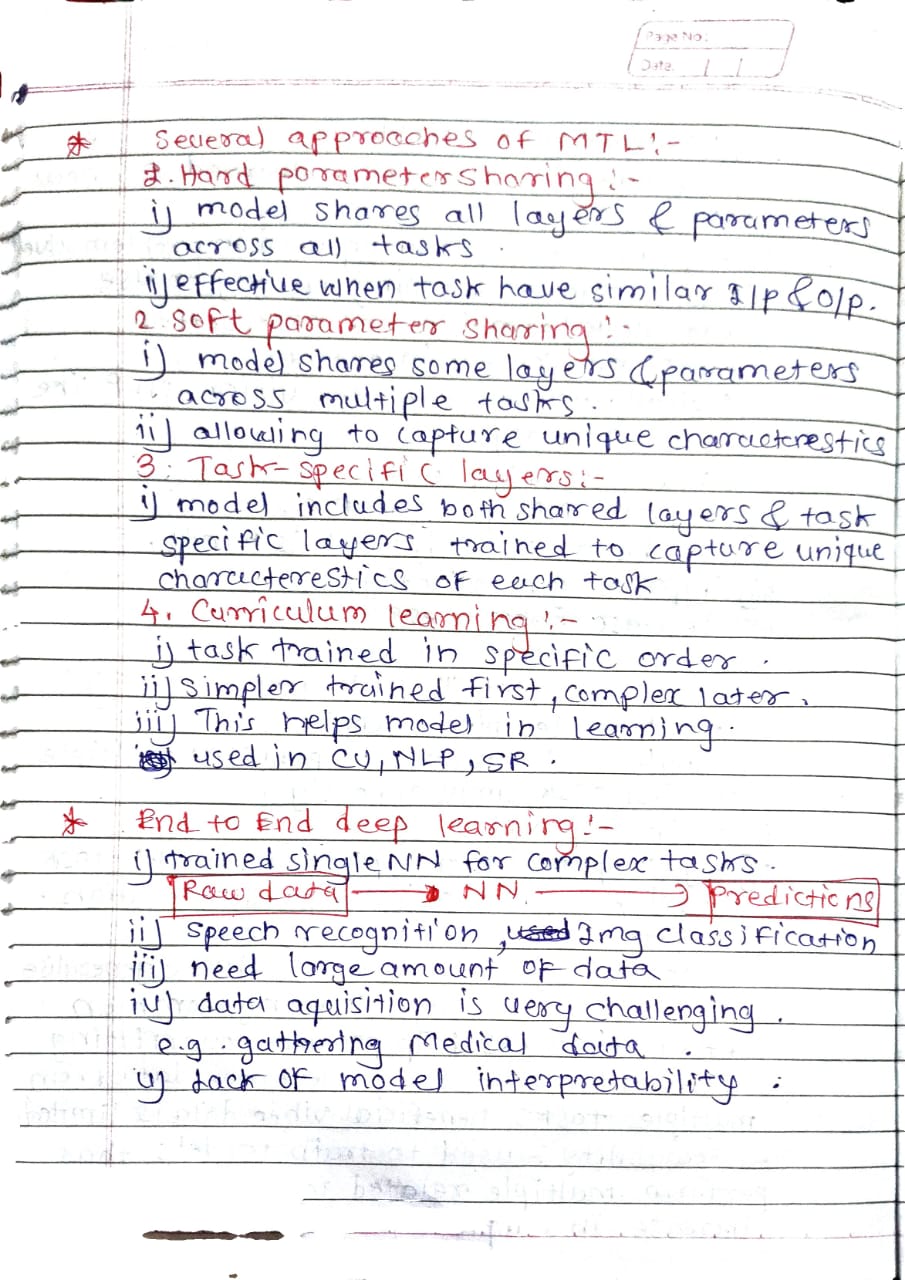 Page No:
Date: / /
* Several approaches of MTL:-
1. Hard parameter sharing:-
i) model shares all layers & parameters
across all tasks.
ii) effective when task have similar I/p & o/p.
2. Soft parameter sharing:-
i) model shares some layers & parameters
across multiple tasks.
ii) allowing to capture unique characterestics
3. Task-specific layers:-
i) model includes both shared layers & task
specific layers trained to capture unique
characterestics of each task
4. Curriculum learning:-
i) task trained in specific order.
ii) Simpler trained first, complex later.
iii) This helps model in learning.
used in CV, NLP, SR.
* End to End deep learning:-
i) trained single NN for complex tasks.
Raw data → NN → Predictions
ii) speech recognition, Img classification
iii) need large amount of data
iv) data aquisition is very challenging.
e.g. gathering Medical data.
v) Lack of model interpretability.